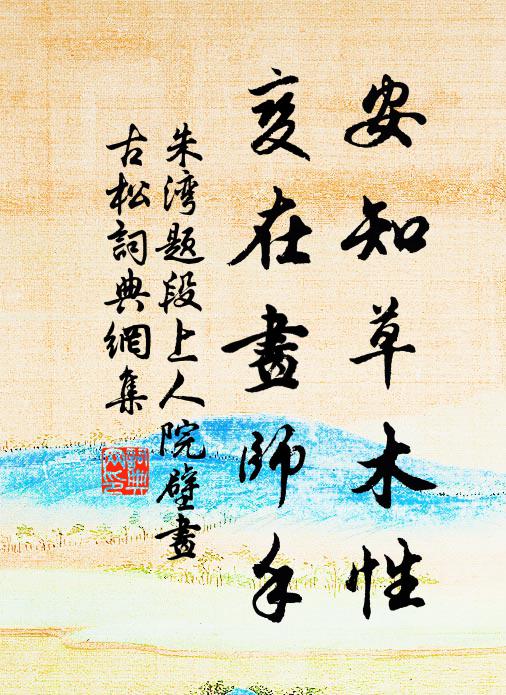 安知草木性
变在畫師手
朱湾題段上人院壁畫
古松詞典網集